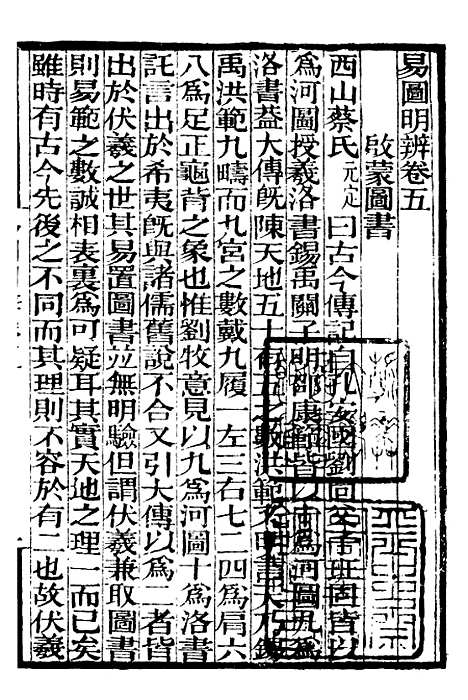 易圖明辨卷五
啟蒙圖書
西山蔡氏元定曰古今傳記自孔安國劉向父子班固皆以
為河圖授羲洛書錫禹關子明邵康節皆以十為河圖九為
洛書蓋大傳既陳天地五十有五之數洪範又明言天乃錫
禹洪範九疇而九宮之數戴九履一左三右七二四為肩六
八為足正龜背之象也惟劉牧意見以九為河圖十為洛書
託言出於希夷既與諸儒舊說不合又引大傳以為二者皆
出於伏羲之世其易置圖書並無明驗但謂伏羲兼取圖書
則易範之數誠相表裏為可疑耳其實天地之理一而已矣
雖時有古今先後之不同而其理則不容於有二也故伏羲